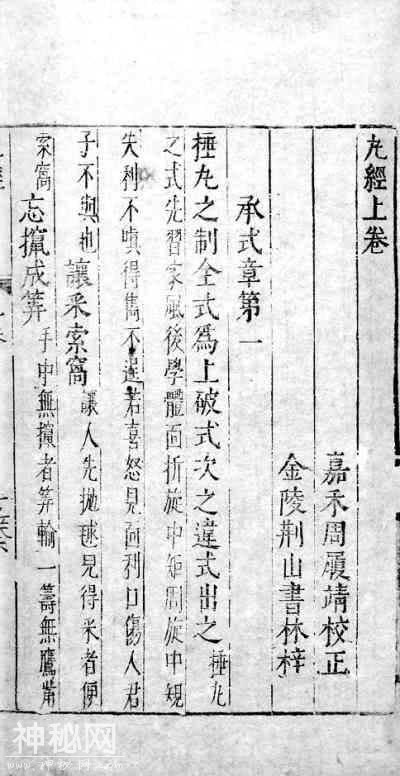 丸經上卷
嘉禾周履靖校正
金陵荆山書林梓
承式章第一
捶丸之制全式爲上破式次之違式出之捶丸
之式先習家風後學體面折旋中矩周旋中規
失利不嗔得雋不逞若喜怒見面利口傷人君
子不與也讓采索窩讓人先抛毬見得采者便
索窩忘攛成筭手中無攛者筭輸一籌無鷹觜
神秘网